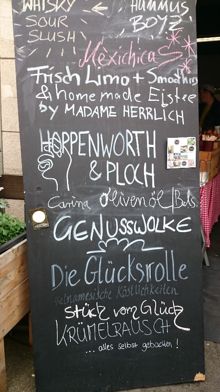 WHISKY
SOUR
SLUSH
HUMMUS
BOYZ
Mexichicas
Frisch Limo + Smoothies
& homemade Eistee
by MADAME HERRLICH
HARPENWORTH
& PLOCH
Carina Olivenöl
GENUSSWOLKE
Die Glücksrolle
vietnamesische Köstlichkeiten
Stück vom Glück
KRÜMELRAUSCH
...alles selbst gebacken!